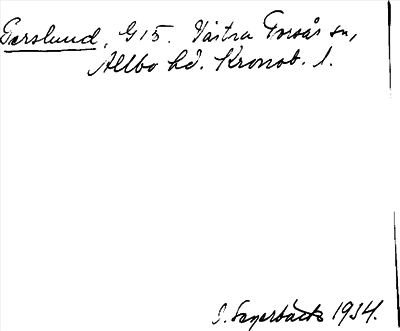 Garslund, G 15. Västra Torsås sn,
Allbo hd. Kronob. l.
I. Fagerbäck 1934.